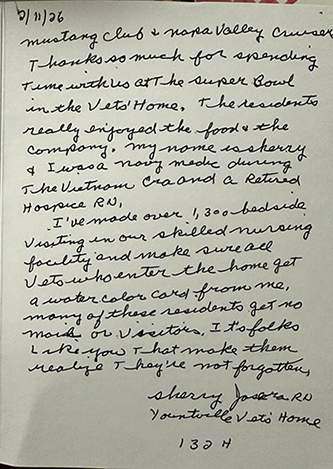 2/11/26
Mustang Club & Napa Valley Cruiser
Thanks so much for spending
Time with us at The Super Bowl
in the Vets' Home. The residents
really enjoyed the food & the
company. My name is Sherry
& I was a Navy medic during
The Vietnam Era and a Retired
Hospice RN.
I've made over 1,300 bedside
Visiting in our skilled nursing
facility and make sure all
Vets who enter the home get
a water color card from me.
Many of these residents get no
mail or Visitors. It's folks
Like you That make them
realize They're not forgotten.
Sherry RN
Yountville Vets' Home
132 H